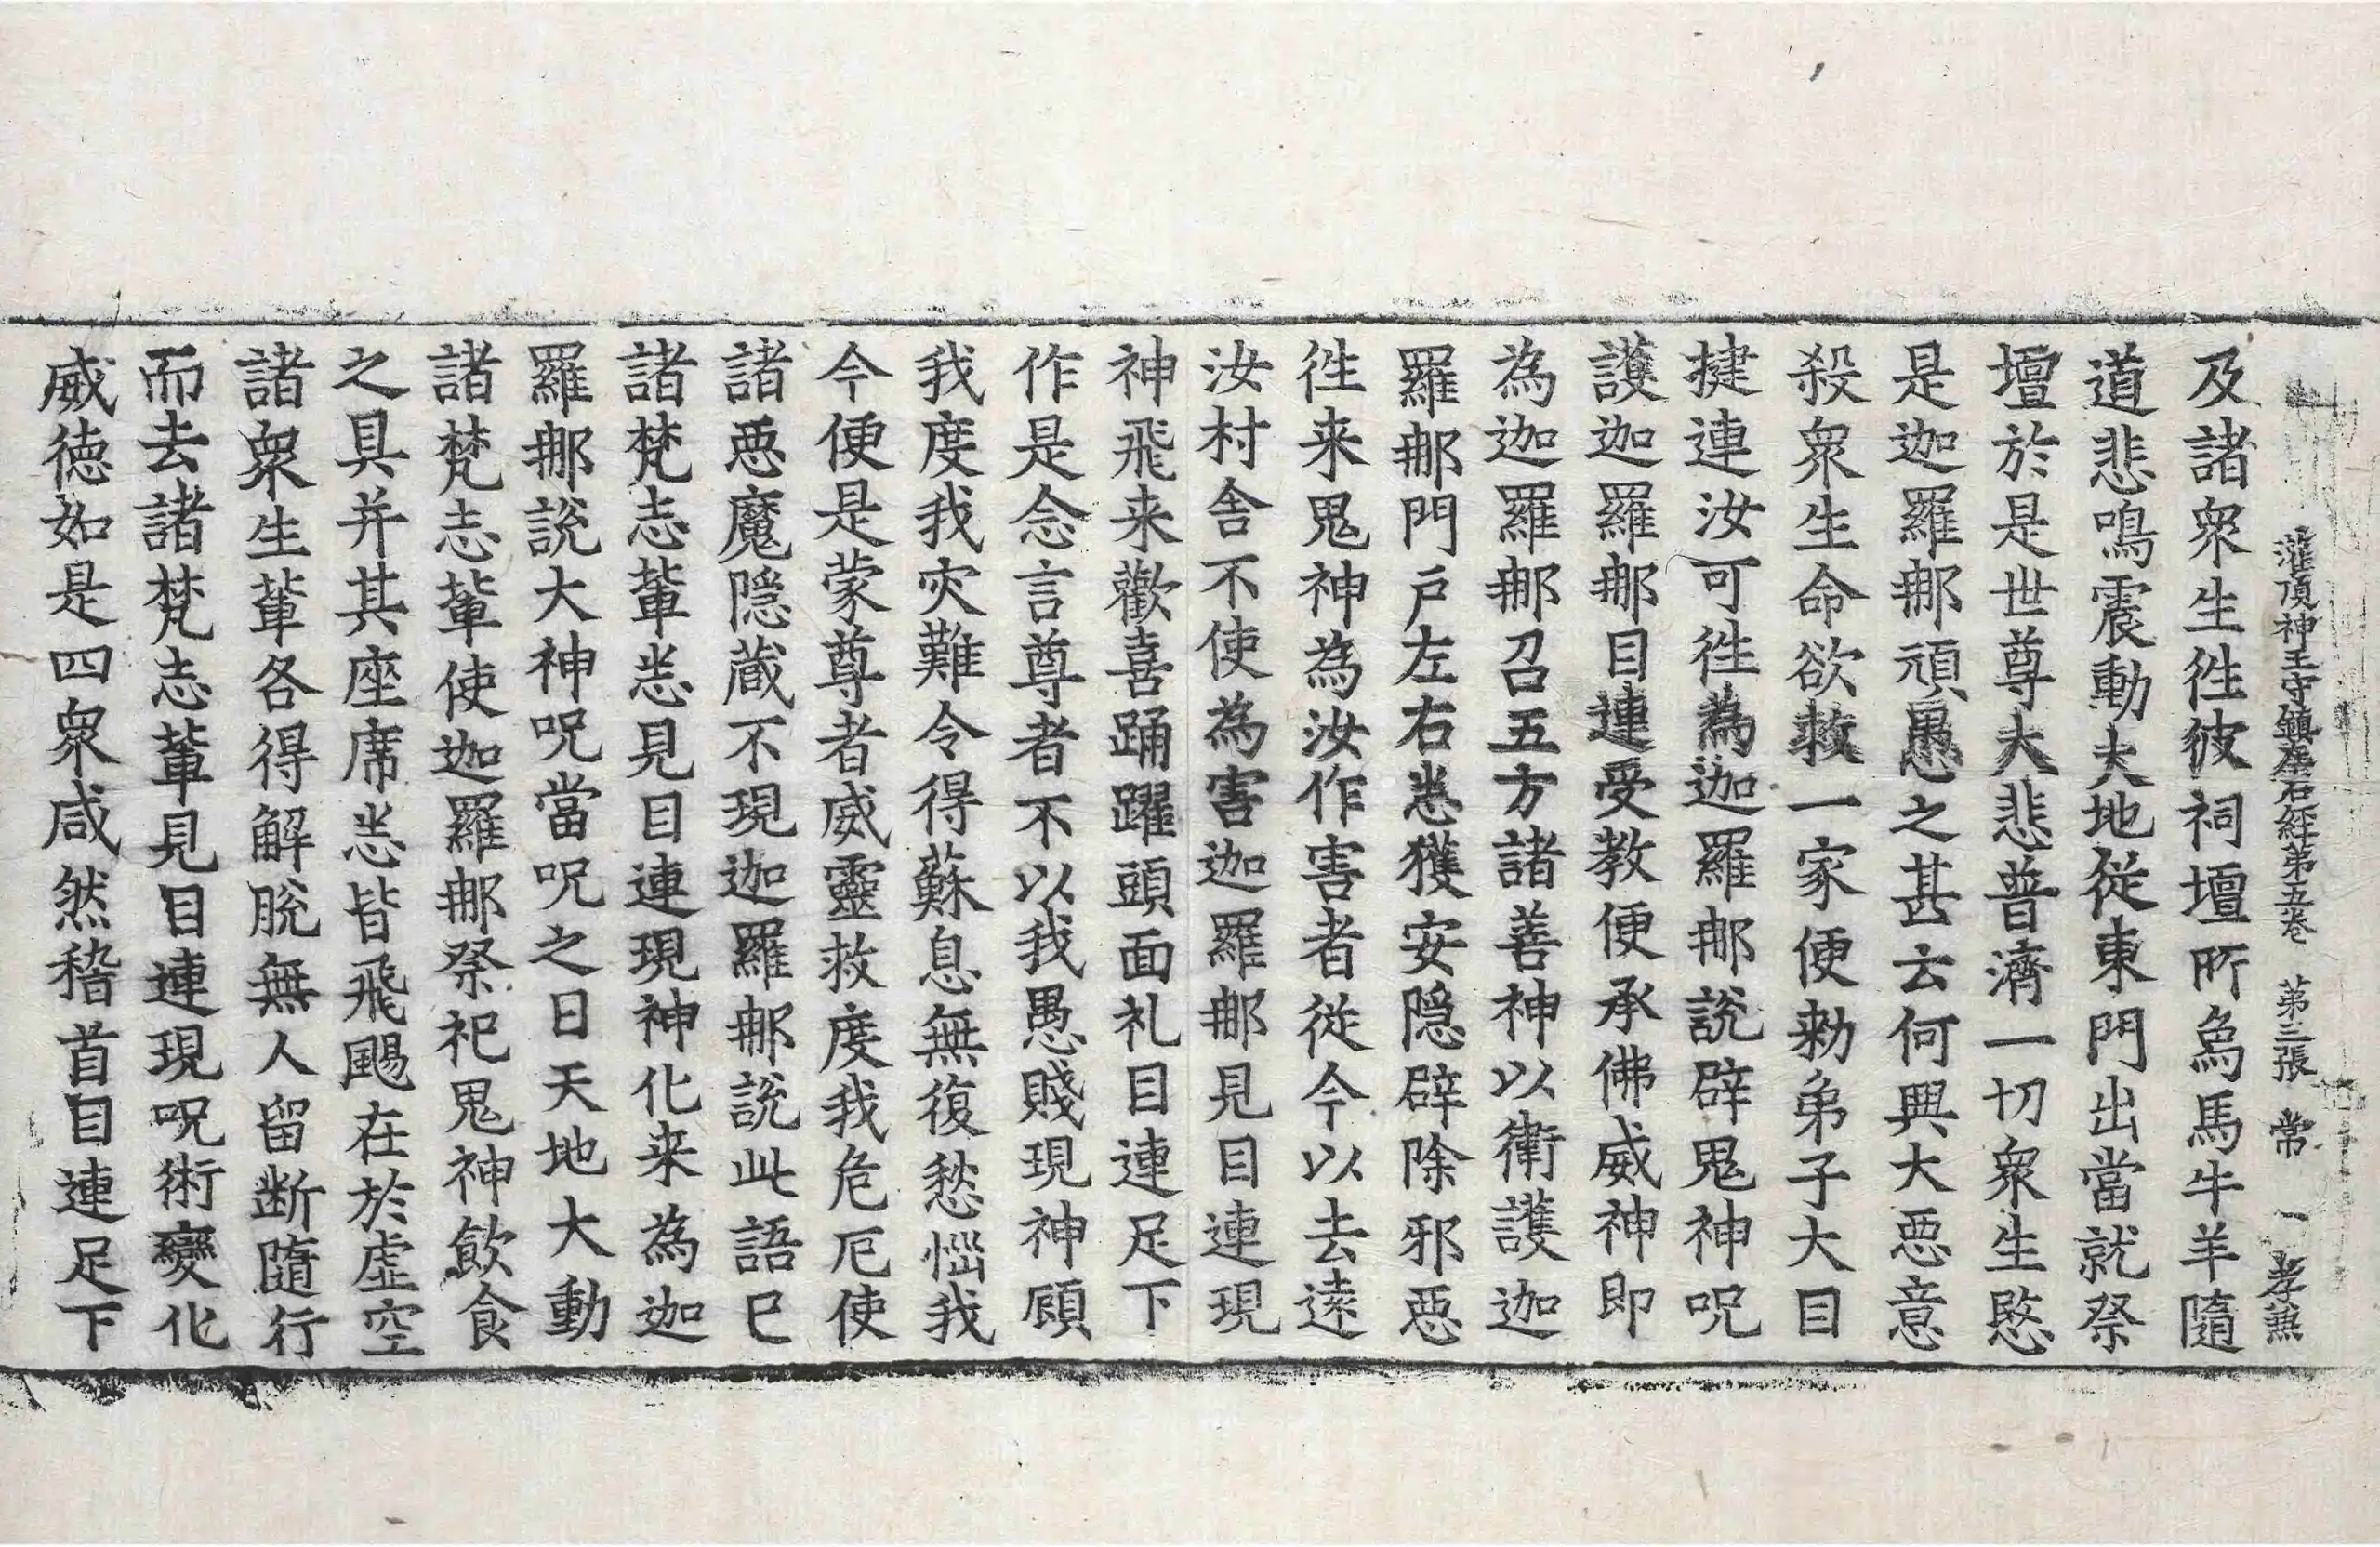 灌頂神王守鎮左右經第五卷 第三張 常 一 孝兼
及諸衆生往彼祠壇所烏馬牛羊隨
道悲鳴震動大地從東門出當就祭
壇於是世尊大悲普濟一切衆生愍
是迦羅那頑愚之甚云何興大惡意
殺衆生命欲救一家便勑弟子大目
揵連汝可往為迦羅那說辟鬼神呪
護迦羅那目連受教便承佛威神即
為迦羅那召五方諸善神以衛護迦
羅那門戶左右悉獲安隱辟除邪惡
往来鬼神為汝作害者從今以去遠
汝村舍不使為害迦羅那見目連現
神飛来歡喜踊躍頭面礼目連足下
作是念言尊者不以我愚賤現神顧
我度我灾難令得蘇息無復愁惱我
今便是蒙尊者威靈救度我危厄使
諸惡魔隱藏不現迦羅那說此語已
諸梵志輩悉見目連現神化来為迦
羅那說大神呪當呪之日天地大動
諸梵志輩使迦羅那祭祀鬼神飲食
之具并其座席悉皆飛颺在於虛空
諸衆生輩各得解脫無人留断隨行
而去諸梵志輩見目連現呪術變化
威德如是四衆咸然稽首目連足下